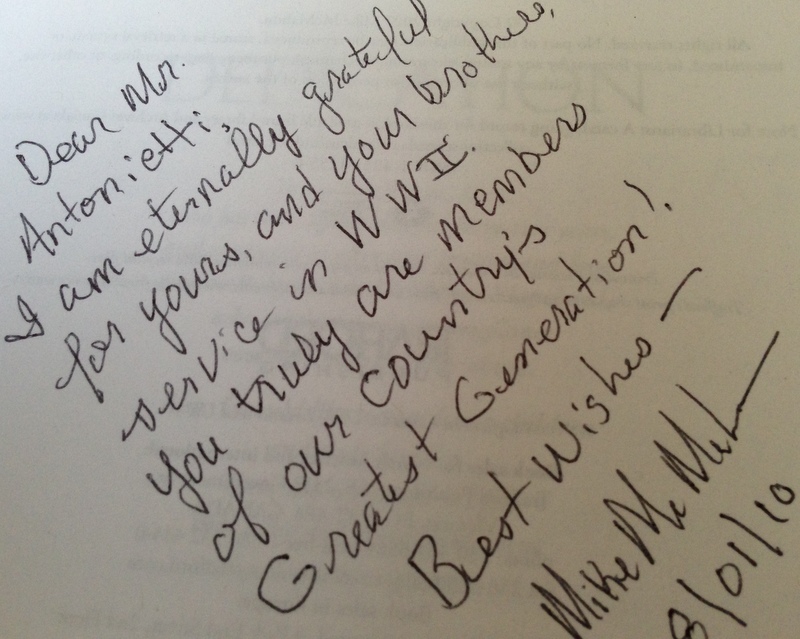 Dear Mr.
Antonietti,
I am eternally grateful
for yours, and your brothers,
service in WWII.
you truly are members
of our country's
Greatest Generation!
Best Wishes —
Mike
8/01/10